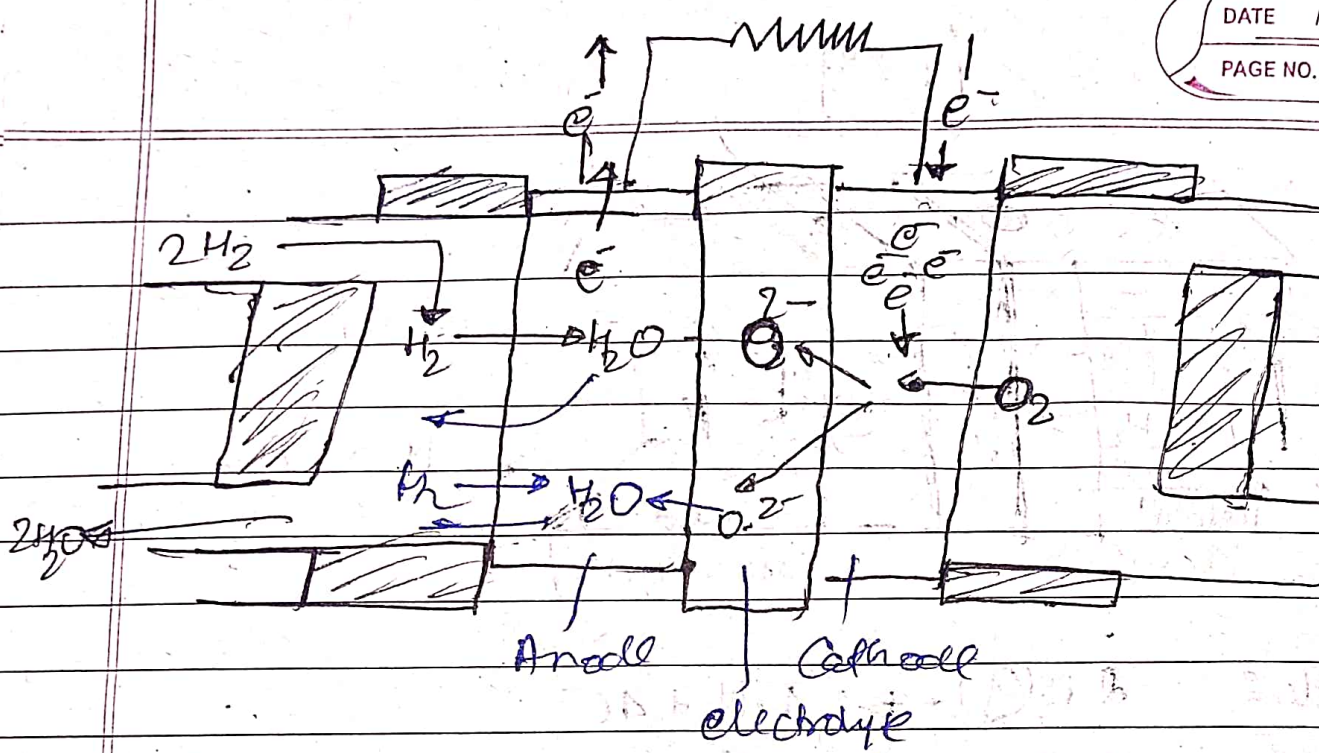 DATE
PAGE NO.
e⁻ e⁻
2H₂ e⁻ e⁻
e⁻ e⁻
e
H₂ H₂O O²⁻
O₂
H₂ H₂O O²⁻
2H₂O
Anode Cathode
electrolyte